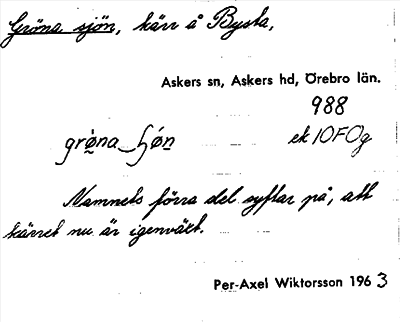 Gröna sjön, kärr å Bysta,
Askers sn, Askers hd, Örebro län.
988
grö̀na ʃǿn ek 10F0g
Namnets förra del syftar på, att
kärret nu är igenväxt.
Per-Axel Wiktorsson 1963